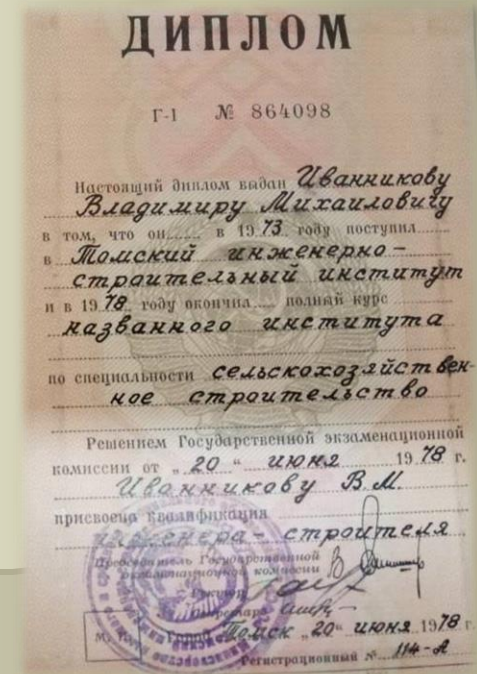 ДИПЛОМ
Г-I № 864098
Настоящий диплом выдан Иванникову
Владимиру Михаиловичу
в том, что он в 1973 году поступил
в Томский инженерно-
строительный институт
и в 1978 году окончил полный курс
названного института
по специальности сельскохозяйствен-
ное строительство
Решением Государственной экзаменационной
комиссии от „20“ июня 1978 г.
Иванникову В.М.
присвоена квалификация
инженера-строителя
Председатель Государственной
экзаменационной комиссии
Ректор
Секретарь
М. П. Город Томск „20“ июня 1978 г.
Регистрационный № 114-А